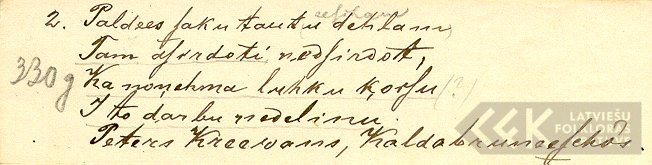 2. Paldees saku tautu dehlam,
Tam dsirdoti, nedsirdot,
330g
Ka noņehma luhku korfu (?)
I to darbu nedelinu.
Peters Kreewans, Kaldabruneeschos.
LATVIEŠU
FOLKLORAS